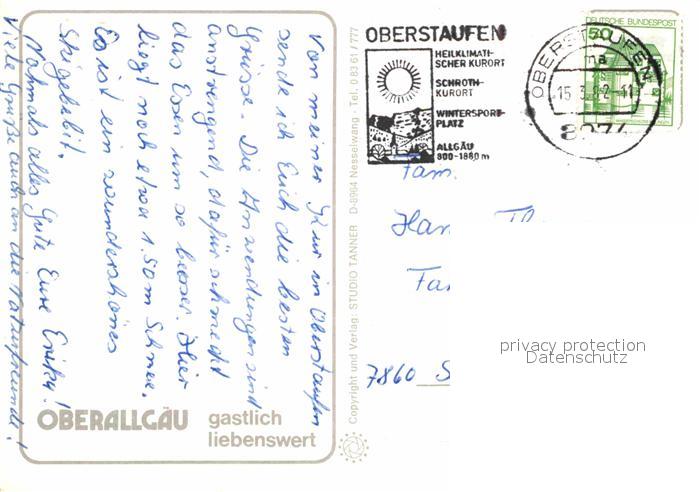 Von meiner Kur in Oberstaufen
sende ich Euch die besten
Grüsse. Die Anwendungen sind
anstrengend, dafür schmeckt
das Essen um so besser. Hier
liegt noch etwa 1.50m Schnee.
Es ist ein wunderschönes
Skigebiet.
Nahmals alles Gute Eure Erika!
Viele Grüße auch an die Naturfreunde!
OBERALLGÄU gastlich
liebenswert
Copyright und Verlag: STUDIO TANNER D-8964 Nesselwang · Tel. 0 83 61 / 777
OBERSTAUFEN
HEILKLIMATI-
SCHER KURORT
SCHROTH-
KURORT
WINTERSPORT-
PLATZ
ALLGÄU
800-1880 m
DEUTSCHE BUNDESPOST
50
OBERSTAUFEN
15.3.82-11
8974
Fam.
Han
Fa
7860 S
privacy protection
Datenschutz